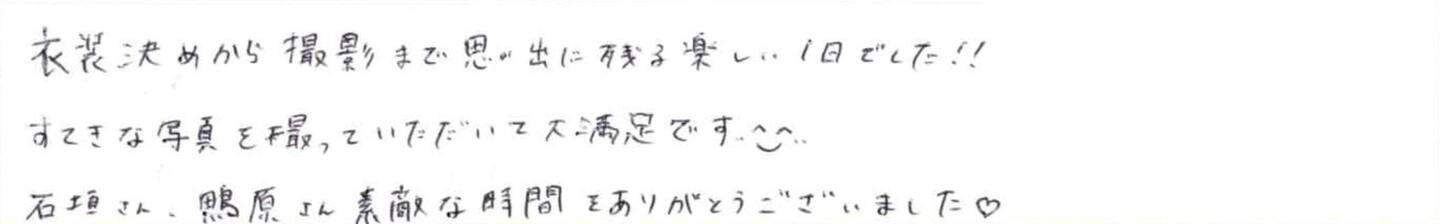 衣装決めから撮影まで思い出に残る楽しい1日でした!!
すてきな写真を撮っていただいて大満足です..^‿^..
石垣さん、鴨原さん素敵な時間をありがとうございました♡